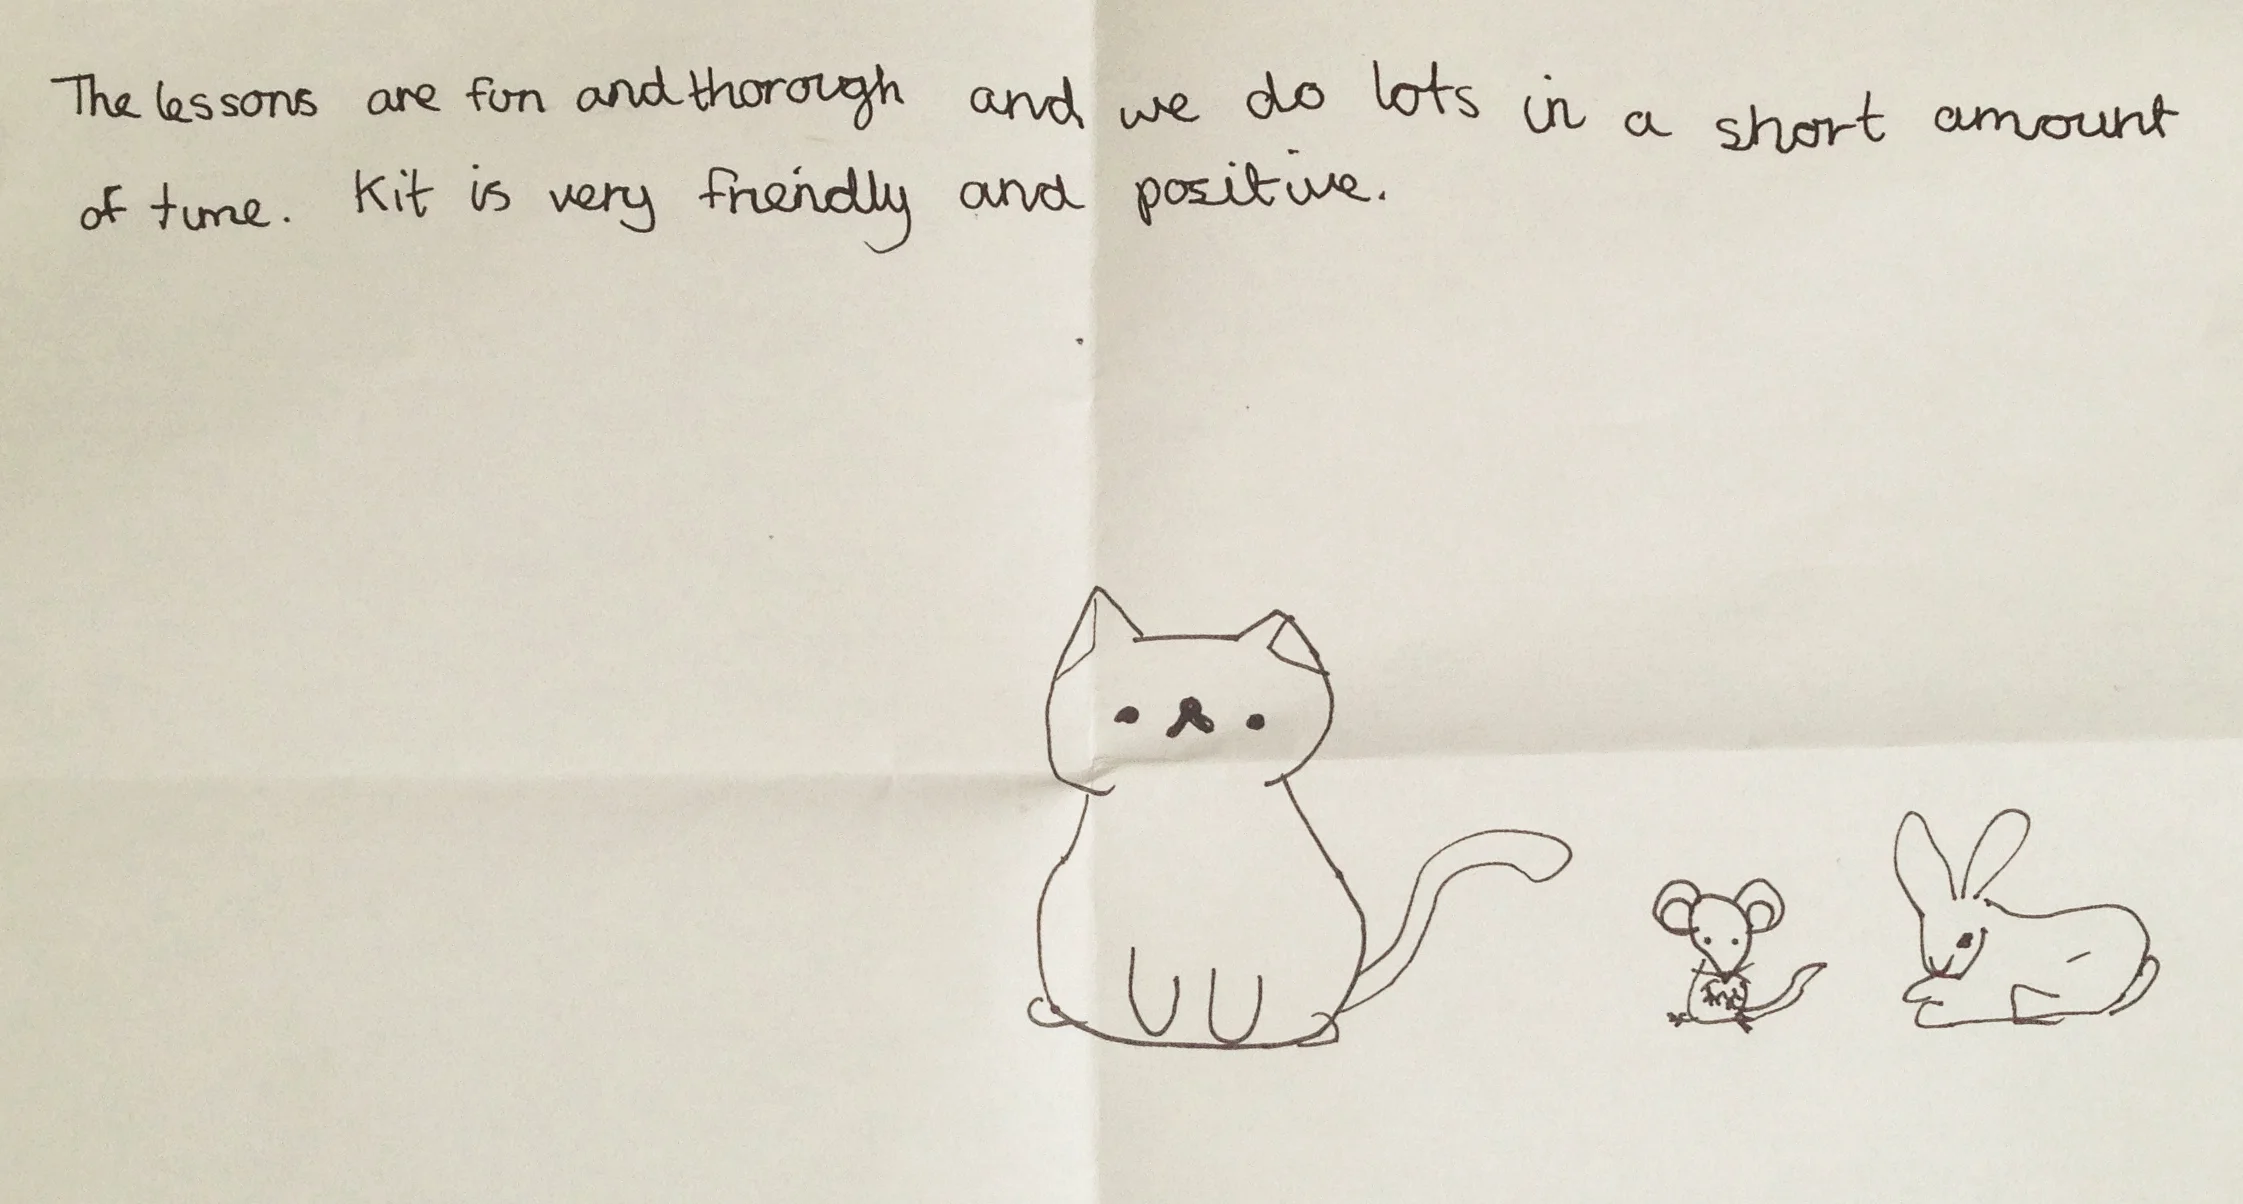 The lessons are fun and thorough and we do lots in a short amount
of time. Kit is very friendly and positive.